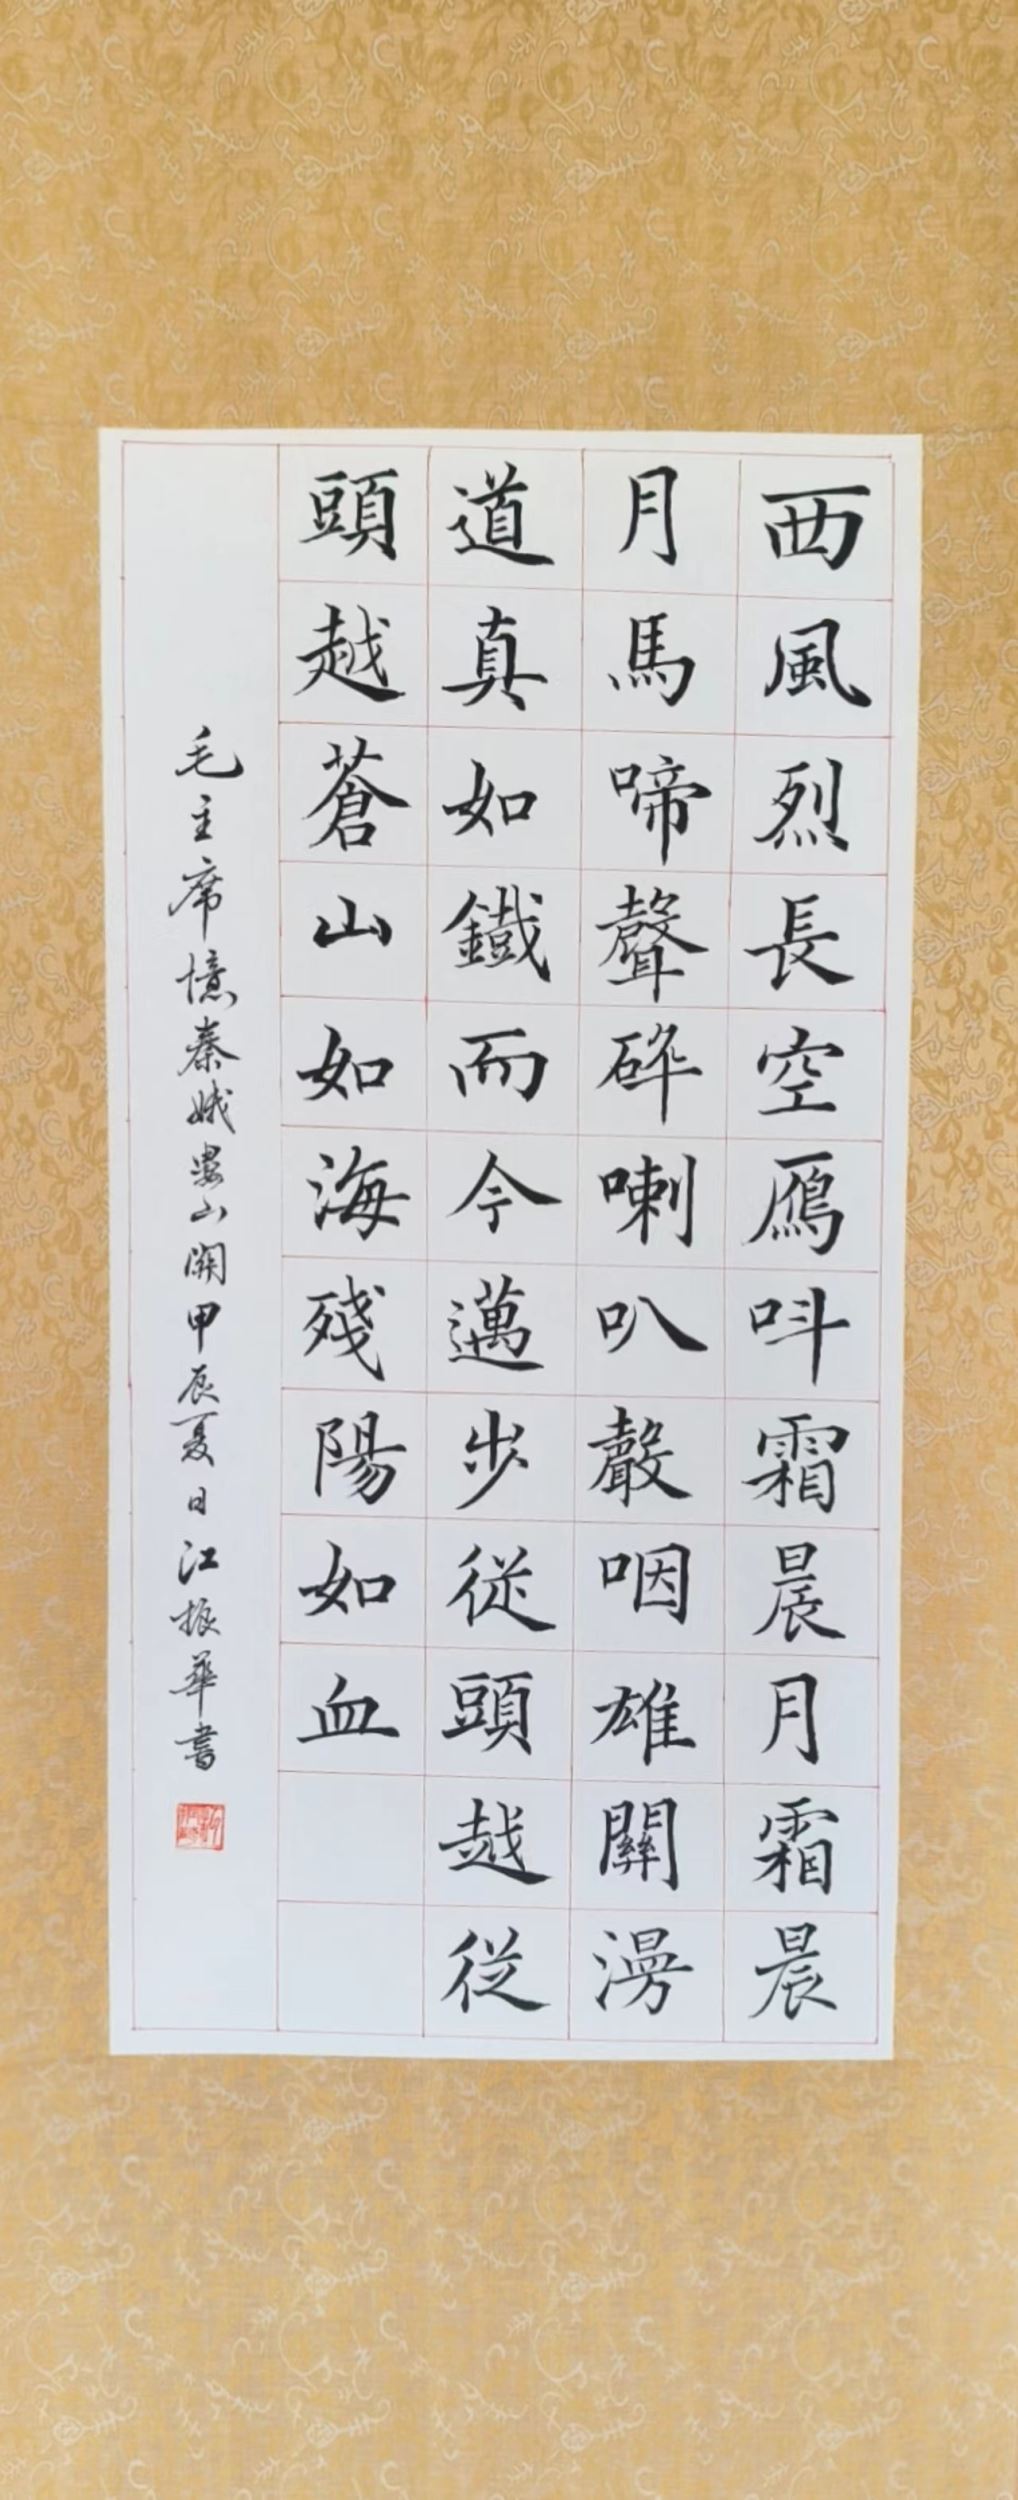 西風烈長空鴈呌霜晨月霜晨
月馬啼聲砕喇叭聲咽雄關漫
道真如鐵而今邁步從頭越從
頭越蒼山如海殘陽如血
毛主席憶秦娥婁山關甲辰夏日江振華書